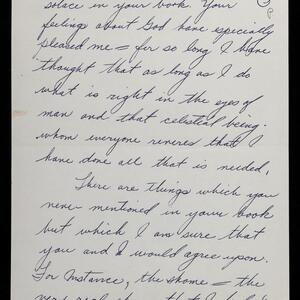 solace in your book. Your
feelings about God have especially
pleased me = for so long I have
thought that as long as I do
what is right in the eyes of
man and that celestial being.
whom everyone reveres that I
have done all that is needed.
There are things which you
never mentioned in your book
but which I am sure that
you and I would agree upon.
For Instance, the shame = the
very real shame that I